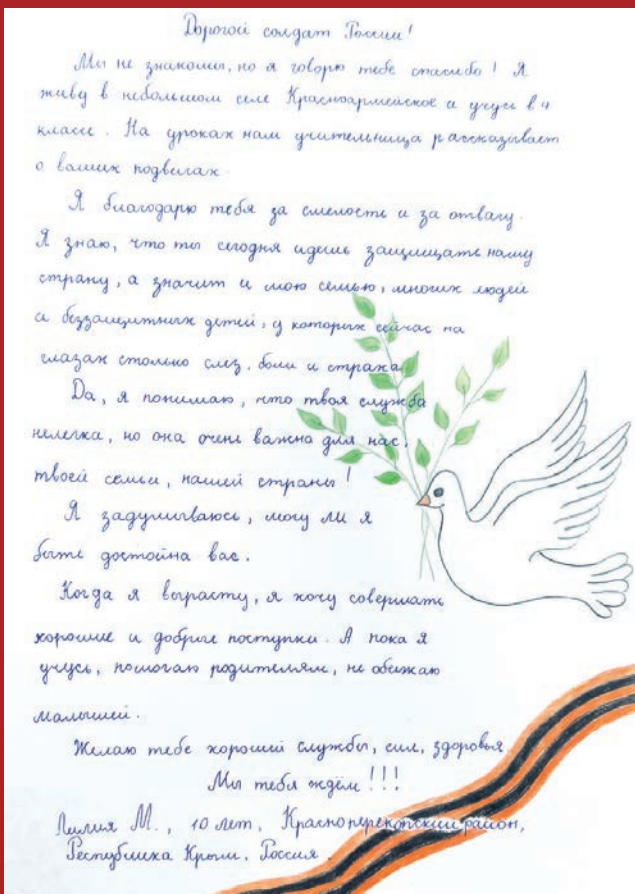 Дорогой солдат России!
Мы не знакомы, но я говорю тебе спасибо! Я
живу в небольшом селе Красноармейское и учусь в 4
классе. На уроках нам учительница рассказывает
о ваших подвигах.
Я благодарю тебя за смелость и за отвагу.
Я знаю, что ты сегодня идешь защищать нашу
страну, а значит и мою семью, многих людей
и беззащитных детей, у которых сейчас на
глазах столько слез, боли и страха.
Да, я понимаю, что твоя служба
нелегка, но она очень важна для нас,
твоей семьи, нашей страны!
Я задумываюсь, могу ли я
быть достойна вас.
Когда я вырасту, я хочу совершать
хорошие и добрые поступки. А пока я
учусь, помогаю родителям, не обижаю
малышей.
Желаю тебе хорошей службы, сил, здоровья.
Мы тебя ждём!!!
Лилия М., 10 лет, Красноперекопский район,
Республика Крым. Россия.